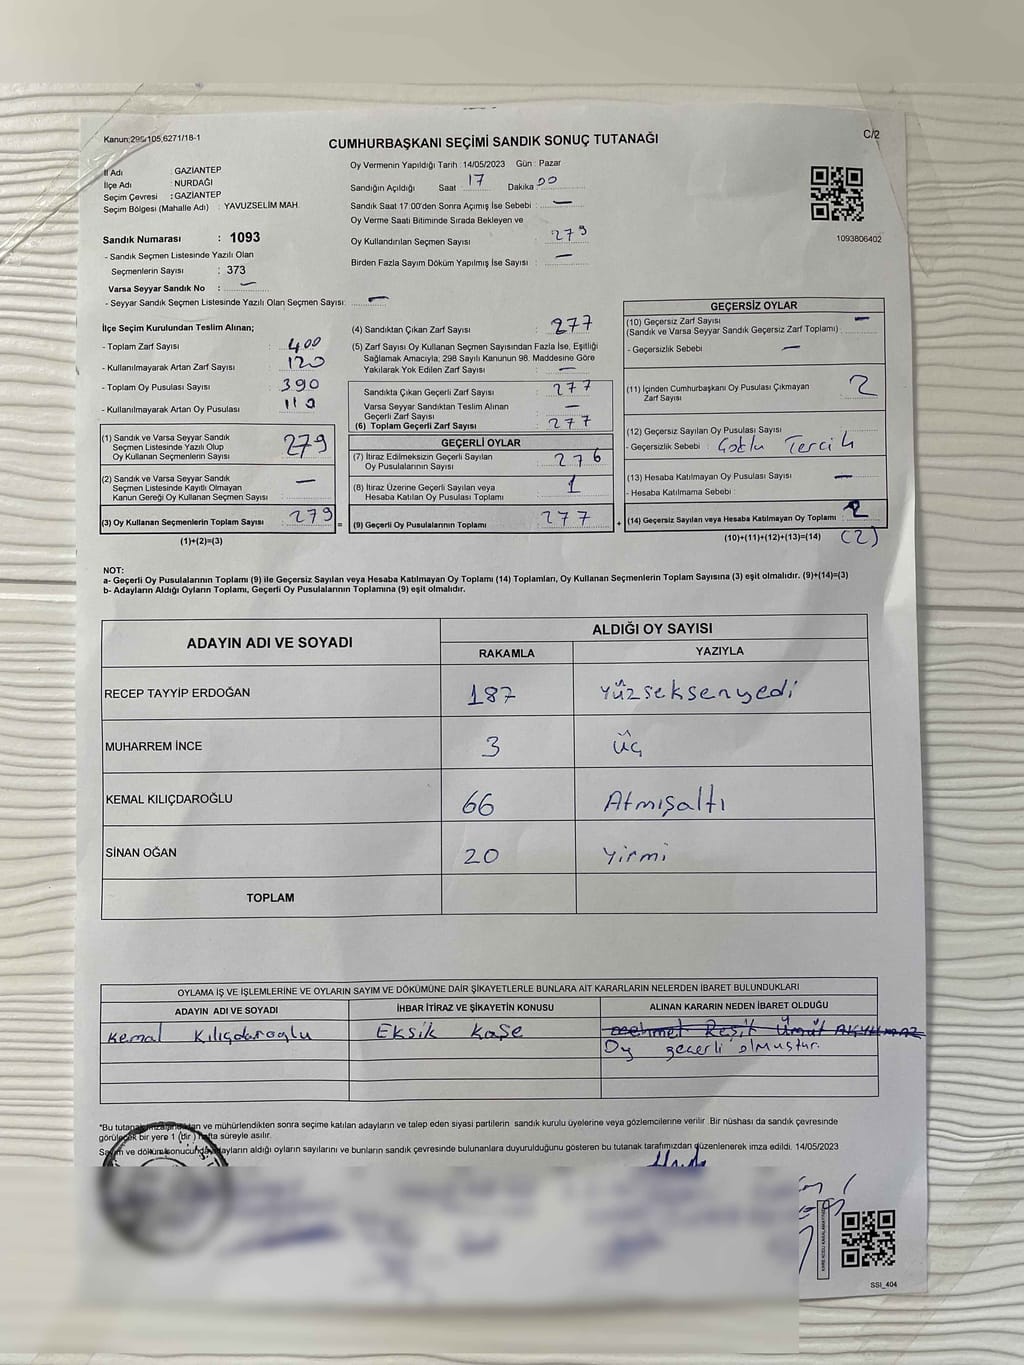 Kanun:298/105,6271/18-1
C/2
CUMHURBAŞKANI SEÇİMİ SANDIK SONUÇ TUTANAĞI
İl Adı : GAZİANTEP
İlçe Adı : NURDAĞI
Seçim Çevresi : GAZİANTEP
Seçim Bölgesi (Mahalle Adı) : YAVUZSELİM MAH.
Sandık Numarası : 1093
- Sandık Seçmen Listesinde Yazılı Olan
Seçmenlerin Sayısı : 373
Varsa Seyyar Sandık No : —
- Seyyar Sandık Seçmen Listesinde Yazılı Olan Seçmen Sayısı: —
Oy Vermenin Yapıldığı Tarih : 14/05/2023 Gün : Pazar
Sandığın Açıldığı Saat 17 Dakika 00
Sandık Saat 17:00'den Sonra Açımış İse Sebebi : —
Oy Verme Saati Bitiminde Sırada Bekleyen ve
Oy Kullandırılan Seçmen Sayısı : 279
Birden Fazla Sayım Döküm Yapılmış İse Sayısı : —
1093806402
İlçe Seçim Kurulundan Teslim Alınan;
- Toplam Zarf Sayısı : 400
- Kullanılmayarak Artan Zarf Sayısı : 120
- Toplam Oy Pusulası Sayısı : 390
- Kullanılmayarak Artan Oy Pusulası : 110
(1) Sandık ve Varsa Seyyar Sandık
Seçmen Listesinde Yazılı Olup
Oy Kullanan Seçmenlerin Sayısı 279
(2) Sandık ve Varsa Seyyar Sandık
Seçmen Listesinde Kayıtlı Olmayan
Kanun Gereği Oy Kullanan Seçmen Sayısı —
(3) Oy Kullanan Seçmenlerin Toplam Sayısı 279 =
(1)+(2)=(3)
(4) Sandıktan Çıkan Zarf Sayısı : 277
(5) Zarf Sayısı Oy Kullanan Seçmen Sayısından Fazla İse, Eşitliği
Sağlamak Amacıyla, 298 Sayılı Kanunun 98. Maddesine Göre
Yakılarak Yok Edilen Zarf Sayısı : —
Sandıkta Çıkan Geçerli Zarf Sayısı : 277
Varsa Seyyar Sandıktan Teslim Alınan
Geçerli Zarf Sayısı : —
(6) Toplam Geçerli Zarf Sayısı : 277
GEÇERLİ OYLAR
(7) İtiraz Edilmeksizin Geçerli Sayılan
Oy Pusulalarının Sayısı 276
(8) İtiraz Üzerine Geçerli Sayılan veya
Hesaba Katılan Oy Pusulası Toplamı 1
(9) Geçerli Oy Pusulalarının Toplamı 277 +
GEÇERSİZ OYLAR
(10) Geçersiz Zarf Sayısı
(Sandık ve Varsa Seyyar Sandık Geçersiz Zarf Toplamı) —
- Geçersizlik Sebebi : —
(11) İçinden Cumhurbaşkanı Oy Pusulası Çıkmayan
Zarf Sayısı 2
(12) Geçersiz Sayılan Oy Pusulası Sayısı
- Geçersizlik Sebebi : Çoklu Tercih
(13) Hesaba Katılmayan Oy Pusulası Sayısı —
- Hesaba Katılmama Sebebi :
(14) Geçersiz Sayılan veya Hesaba Katılmayan Oy Toplamı 2
(10)+(11)+(12)+(13)=(14) (2)
NOT:
a- Geçerli Oy Pusulalarının Toplamı (9) ile Geçersiz Sayılan veya Hesaba Katılmayan Oy Toplamı (14) Toplamları, Oy Kullanan Seçmenlerin Toplam Sayısına (3) eşit olmalıdır. (9)+(14)=(3)
b- Adayların Aldığı Oyların Toplamı, Geçerli Oy Pusulalarının Toplamına (9) eşit olmalıdır.
ADAYIN ADI VE SOYADI
ALDIĞI OY SAYISI
RAKAMLA YAZIYLA
RECEP TAYYİP ERDOĞAN 187 Yüzseksenyedi
MUHARREM İNCE 3 üç
KEMAL KILIÇDAROĞLU 66 Atmışaltı
SİNAN OĞAN 20 Yirmi
TOPLAM
OYLAMA İŞ VE İŞLEMLERİNE VE OYLARIN SAYIM VE DÖKÜMÜNE DAİR ŞİKAYETLERLE BUNLARA AİT KARARLARIN NELERDEN İBARET BULUNDUKLARI
ADAYIN ADI VE SOYADI İHBAR İTİRAZ VE ŞİKAYETİN KONUSU ALINAN KARARIN NEDEN İBARET OLDUĞU
Kemal Kılıçdaroglu Eksik Kaşe Mehmet Reşit Ümüt AKYILMAZ
Oy geçerli olmuştur.
*Bu tutanak ve mühürlendikten sonra seçime katılan adayların ve talep eden siyasi partilerin sandık kurulu üyelerine veya gözlemcilerine verilir. Bir nüshası da sandık çevresinde
görülecek bir yere 1 (bir) hafta süreyle asılır.
Sayım ve döküm sonucunda adayların aldığı oyların sayılarını ve bunların sandık çevresinde bulunanlara duyurulduğunu gösteren bu tutanak tarafımızdan düzenlenerek imza edildi. 14/05/2023
SSI_404